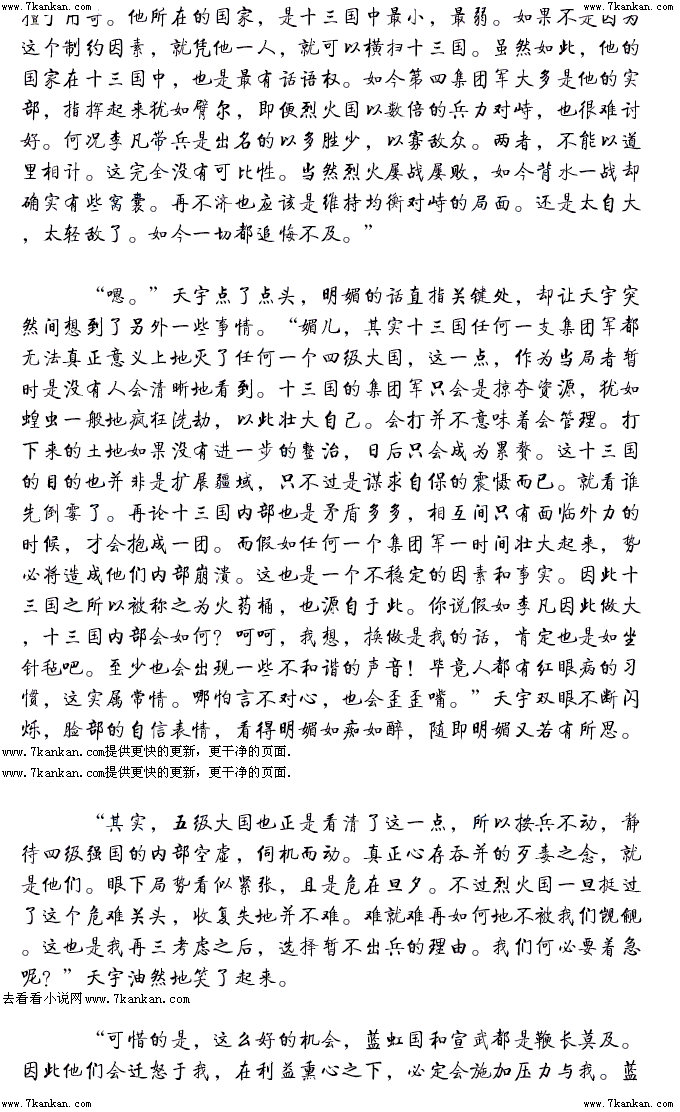 www.7kankan.com www.7kankan.com
擅于用奇。他所在的国家，是十三国中最小，最弱。如果不是因为
这个制约因素，就凭他一人，就可以横扫十三国。虽然如此，他的
国家在十三国中，也是最有话语权。如今第四集团军大多是他的实
部，指挥起来犹如臂尔，即便烈火国以数倍的兵力对峙，也很难讨
好。何况李凡带兵是出名的以多胜少，以寡敌众。两者，不能以道
里相计。这完全没有可比性。当然烈火屡战屡败，如今背水一战却
确实有些窝囊。再不济也应该是维持均衡对峙的局面。还是太自大
，太轻敌了。如今一切都追悔不及。”
“嗯。”天宇点了点头，明媚的话直指关键处，却让天宇突
然间想到了另外一些事情。“媚儿，其实十三国任何一支集团军都
无法真正意义上地灭了任何一个四级大国，这一点，作为当局者暂
时是没有人会清晰地看到。十三国的集团军只会是掠夺资源，犹如
蝗虫一般地疯狂洗劫，以此壮大自己。会打并不意味着会管理。打
下来的土地如果没有进一步的整治，日后只会成为累赘。这十三国
的目的也并非是扩展疆域，只不过是谋求自保的震慑而已。就看谁
先倒霉了。再论十三国内部也是矛盾多多，相互间只有面临外力的
时候，才会抱成一团。而假如任何一个集团军一时间壮大起来，势
必将造成他们内部崩溃。这也是一个不稳定的因素和事实。因此十
三国之所以被称之为火药桶，也源自于此。你说假如李凡因此做大
，十三国内部会如何？呵呵，我想，换做是我的话，肯定也是如坐
针毡吧。至少也会出现一些不和谐的声音！毕竟人都有红眼病的习
惯，这实属常情。哪怕言不对心，也会歪歪嘴。”天宇双眼不断闪
烁，脸部的自信表情，看得明媚如痴如醉，随即明媚又若有所思。
www.7kankan.com提供更快的更新，更干净的页面.
www.7kankan.com提供更快的更新，更干净的页面.
“其实，五级大国也正是看清了这一点，所以按兵不动，静
待四级强国的内部空虚，伺机而动。真正心存吞并的歹毒之念，就
是他们。眼下局势看似紧张，且是危在旦夕。不过烈火国一旦挺过
了这个危难关头，收复失地并不难。难就难再如何地不被我们觊觎
。这也是我再三考虑之后，选择暂不出兵的理由。我们何必要着急
呢？”天宇油然地笑了起来。
去看看小说网www.7kankan.com
“可惜的是，这么好的机会，蓝虹国和宣武都是鞭长莫及。
因此他们会迁怒于我，在利益熏心之下，必定会施加压力与我。蓝
www.7kankan.com www.7kankan.com